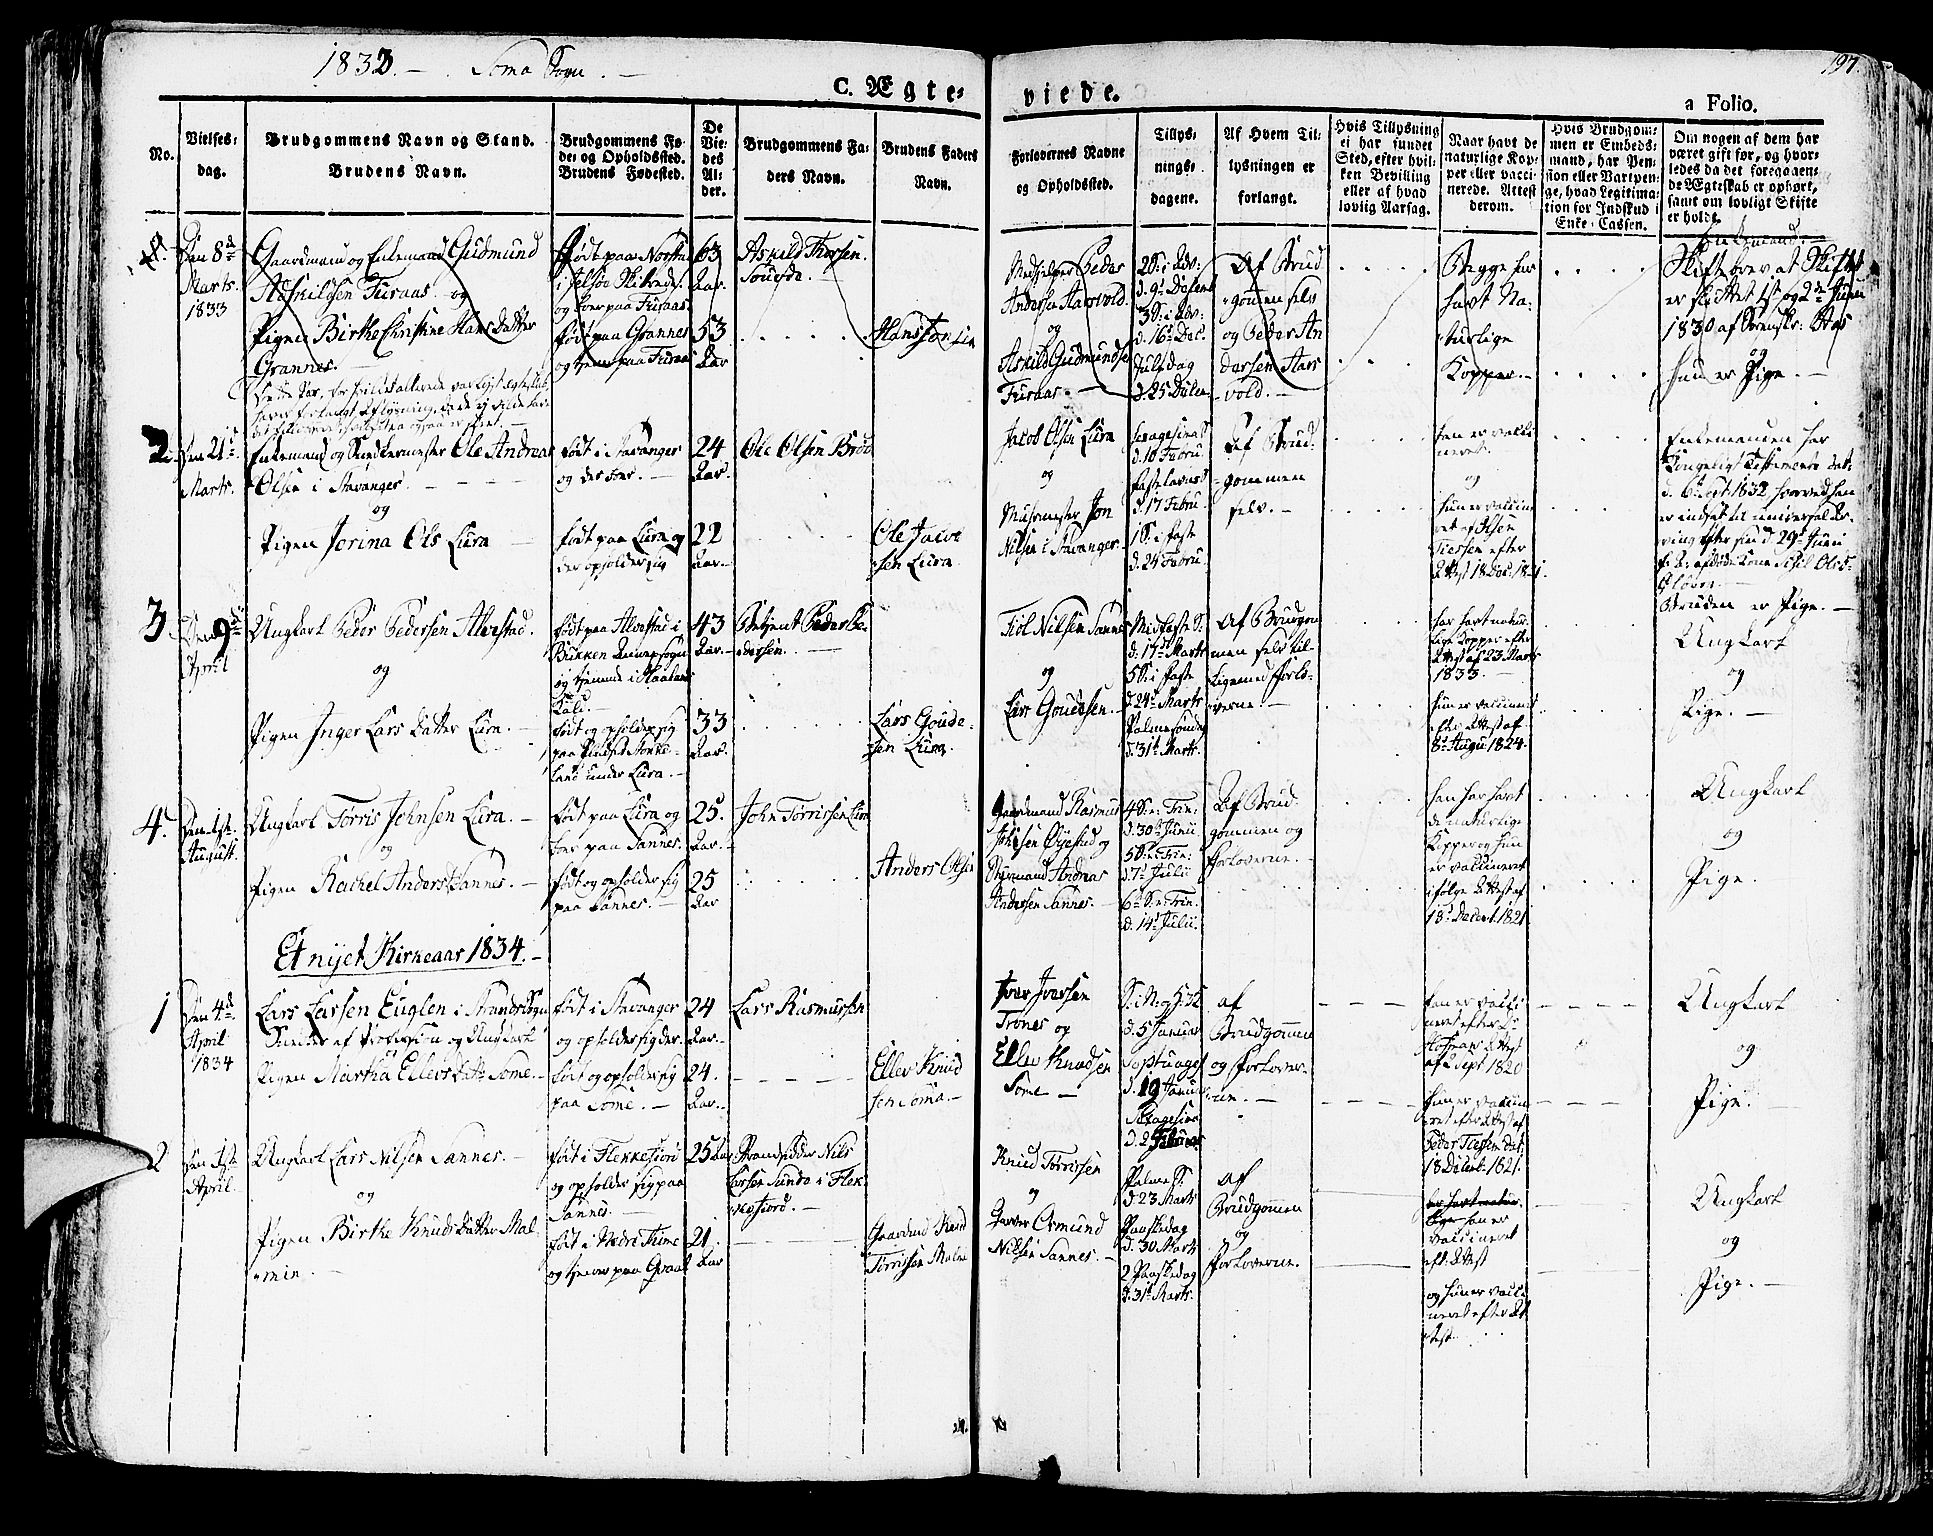 1833. — Soma Sogn. —
C. Ægte-
viede.
a Folio.
197.
No.
Vielses-
dag.
Brudgommens Navn og Stand.
Brudens Navn.
Brudgommens Fø-
de- og Opholdssted.
Brudens Fødested.
De
Vie-
des
Al-
der.
Brudgommens Fa-
ders Navn.
Brudens Faders
Navn.
Forlovernes Navne
og Opholdssted.
Tillys-
nings-
dagene.
Af Hvem Til-
lysningen er
forlangt.
Hvis Tillysning
ei har fundet
Sted, efter hvil-
ken Bevilling
eller af hvad
lovlig Aarsag.
Naar havt de
naturlige Kop-
per eller vacci-
nerede. Attest
derom.
Hvis Brudgom-
men er Embeds-
mand, har Pen-
sion eller Vartpen-
ge, hvad Legitima-
tion for Indskud i
Enke-Cassen.
Om nogen af dem har
været gift før, og hvor-
ledes da det foregaaen-
de Ægteskab er ophørt,
samt om lovligt Skifte
er holdt.
Den 8de
Marts.
1833
Gaardmand og Enkemand Gudmund
Adskildsen Furaas. og
Pigen Birthe Christine Hansdatter
Grannes. —
født paa
i Jelsøe
og boer paa Furaas.
født paa Grannes
og tjener paa Furaas
63
Aar.
53
Aar
Askild Thorsen
Hans Jonsen
Medhjelper Peder
Andersen Aarsvold.
og
Askild Gudmundsen
Furaas. —
2 S: i Adv:
d. 9de Decemb
3 S: i Adv:
d. 16de Dec.
Juledag
d. 25 Decbr
Af Brud
gommen selv
og Peder An
dersen Aars
vold. —
Begge har
havt Na-
turlige
Kopper. —
Enkemand.
Skiftebrev at Skiftet
er sluttet 1st og 2de Junii
1830 af
og
hun er Pige. —
2.
Den 21de
Marts.
Enkemand og Snedkermester Ole Andreas
Olsen i Stavanger. — — —
og
Pigen Jorina Ols Lura —
født i Stavanger
og der boer. —
født paa Lura og
der opholder sig
24
Aar.
22
Aar. —
Ole Olsen Brød
Ole Jacob
sen Lura
Jacob Olsen Lura
og
Muurmester Jon
Nilsen i Stavanger. —
Sexagesima S
d. 10 Febru.
Fastelavns S
d. 17 Febru.
1 S: i Faste
d. 24 Febru.
Af Brud-
gommen
selv. —
han er vacci
neret.
og
hun er vaccine
ret af
Tiessen efter
Attest 18 Dec. 1821.
Enkemanden har
Kongeligt Testimente dat:
d. 6te Sept. 1832, hvorved han
er indsat til universal Ar-
ving efter sin d 29de Junii
Bruden er Pige. —
3
Den 9de
April
Ungkarl Peder Pedersen Alvestad.
og
Pigen Inger Lars Datter Lura. —
født paa Alvestad i
Bukken Rennesøesogn
og tjenende i
født og opholder sig
paa Pladsen Stokke-
land under Lura. —
43
Aar. —
33
Aar.
Betjent Peder Pe-
dersen. —
Lars Goude-
sen Lura.
Fiøl Nilsen Sannes
og
Lars Goudesen. —
Midfaste S.
d: 17de Marts
5 S: i Faste
d 24de Marts
Palmesøndag
d: 31te Marts.
Af Brudgom
men selv til-
ligemed forlo-
verne. —
har havt natur-
lige Kopper efter
Attest af 23 Marts
1833. —
hun er vaccineret
efter Attest af
8de Augu 1824.
Ungkarl
og
Pige. —
4.
Den 1ste
August.
Ungkarl Torris Johnsen Lura. —
og
Pigen Rachel Anders D Sannes. —
født paa Lura og
boer paa Sannes. —
født og opholder sig
paa Sannes. —
25.
Aar. —
25
Aar
John Torrissen Lura
Anders Olsen
Gaardmand Rasmus
Johnsen Øygesud og
Styrmand Andreas
Andersen Sannes. —
4 S: e: Trin:
d. 30te Junii
5 S: e: Trin:
d: 7de Julii
6te S: e: Trin.
d. 14de Julii.
Af Brud-
gommen og
Forloverne. —
han har havt
de naturlige
Kopper og hun
er vaccineret
ifølge Attest af
18de Decbr. 1821
Ungkarl
og
Pige.
Et nyet Kirkeaar 1834. —
1
Den 4de
April
1834
Lars Larsen Euglen i Strands Sogn
Smed af Profession og Ungkarl
Pigen Martha Ellevs Datter Some. —
født i Stavanger
og opholder sig der.
født og opholder sig
paa Some. —
24
Aar. —
24.
Aar. —
Lars Rasmussen
Ellev Knud
sen Soma. —
Iver Iversen
Trones og
Ellev Knudsen
Some —
d. 5 Januar
Septuages
d. 19 Januar
Sexagesima
d. 2 Februar
af
Brudgommen
og Forlover-
ne. —
han er vacci
neret efter
Hofmans Attest
af 2 Sept 1820
hun er vaccine
ret efter Attest af
Peder Tiessen dat:
18 Decbr. 1821.
Ungkarl
og
Pige. —
2
Den 1ste
April.
Ungkarl Lars Nilsen Sannes. —
og
Pigen Birthe Knuds Datter Mal-
min. —
født i Flekkefiord
og opholder sig paa
Sannes. —
født i Nedre Time
og tjener paa Graal
25 Aar
21.
Aar
Strandsidder Nils
Larsen Sunde i Flek-
kefiord. —
Gaardmd Knud
Torrissen Malm
Knud Torrissen
og
Garver Ormund
Nilsen Sannes. —
Palme S.
d 23 Marts
Paaskedag
d. 30 Marts
2 Paaskedag
d: 31te Marts.
af
Brudgommen
og
Forloverne.
har havt natur-
lige han er
vaccineret
eft: Attest
og hun er vacci
neret efter At
test
Ungkarl
og
Pige. —